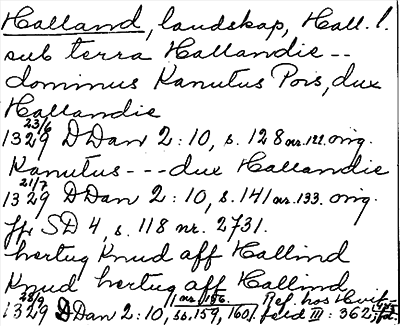 Halland, landskap, Hall. l.
sub terra Hallandie --
dominus Kanutus Pors, dux
Hallandie
1329 23/6 DDan 2:10, s. 128 nr. 122. orig.
Kanutus --- dux Hallandie
1329 21/7 DDan 2:10, s. 141 nr. 133. orig.
Jfr SD 4, s. 118 nr. 2731.
hertug Knud aff Hallind
Knud hertug aff Hallind
1329 28/9 DDan 2:10, ss. 159, 160 nr. 156. Ref. hos Hvit-
feld III: 362,